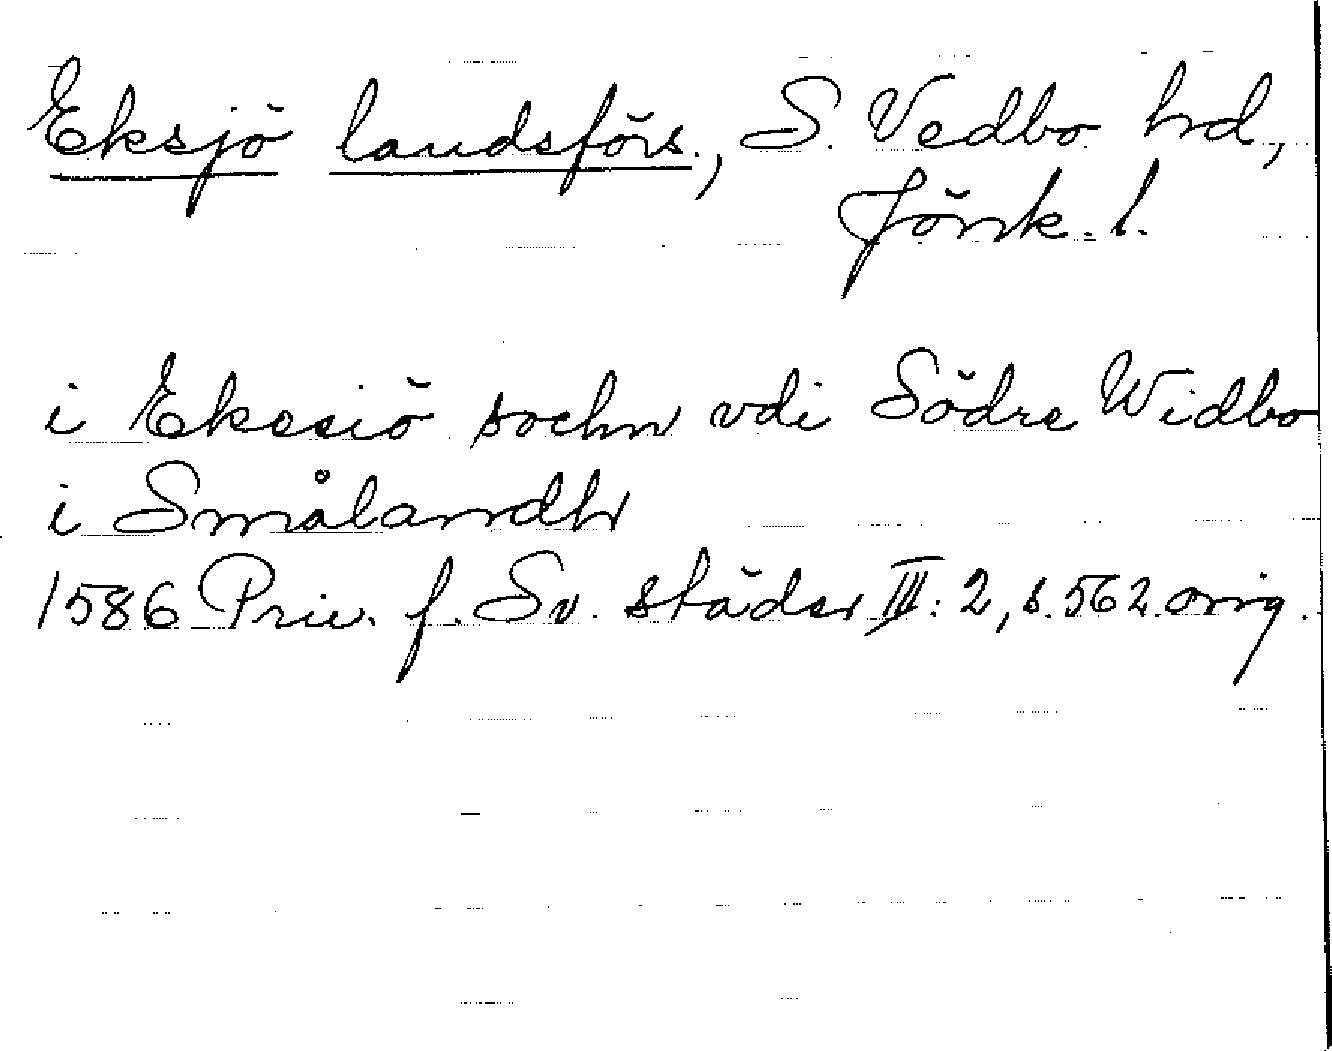 Eksjö landsförs., S. Vedbo hrd,
Jönk. l.
i Ekesiö sochn vdi Södre Widbo
i Smålandh
1586 Priv. f. Sv. städer III: 2, s. 562 orig.